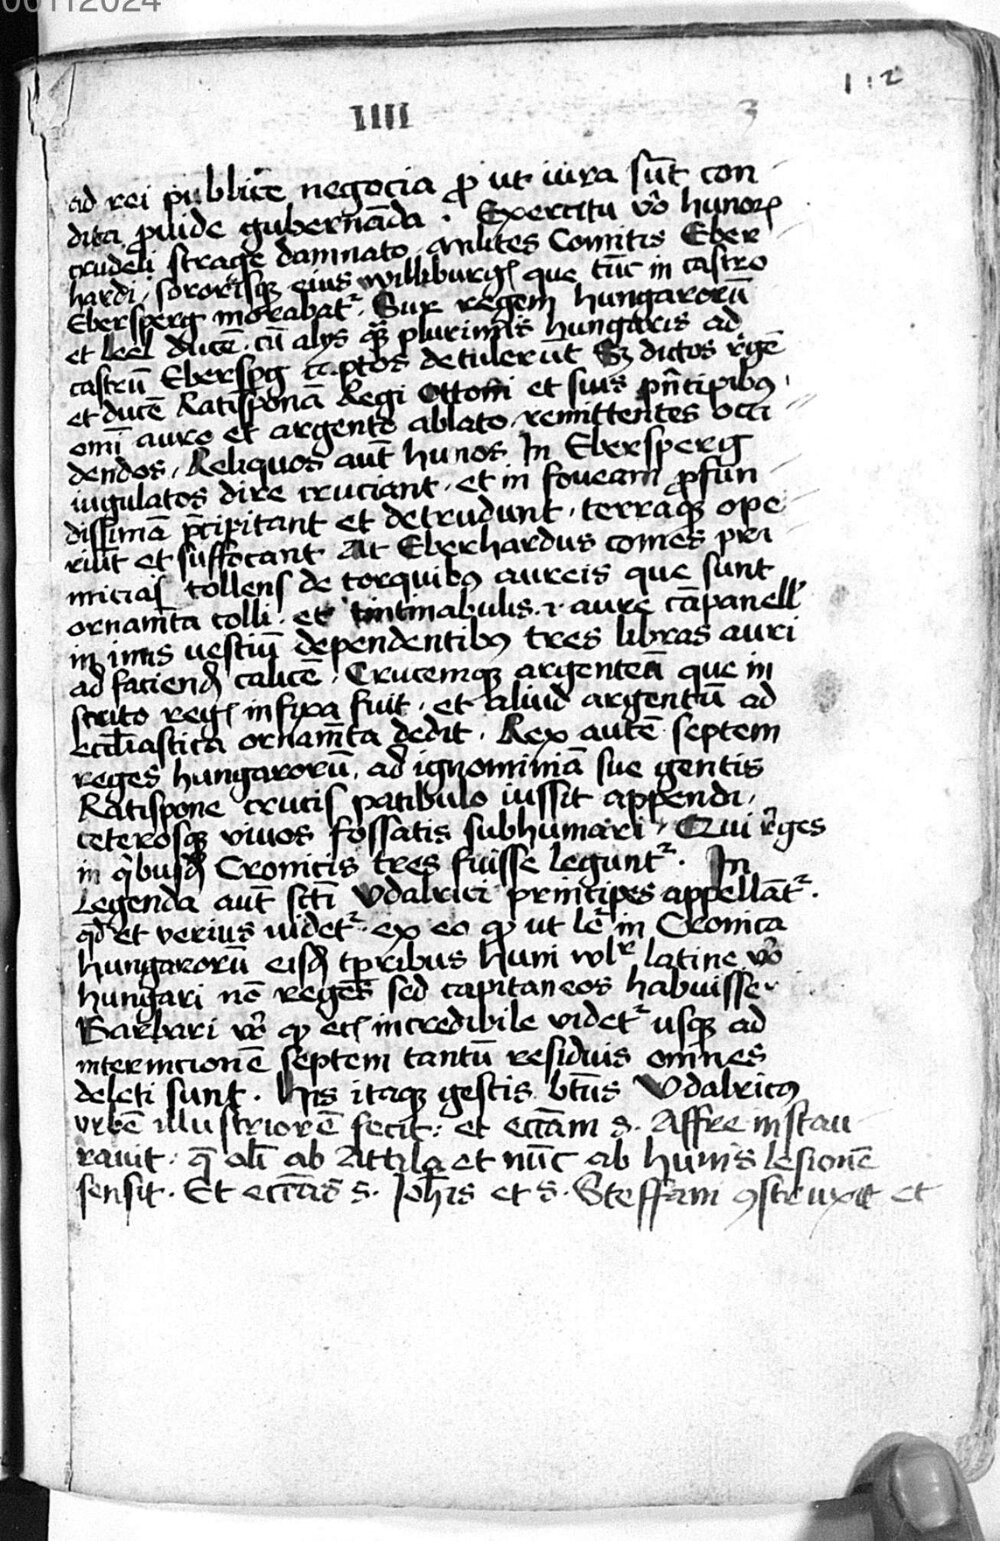 00112024
112
IIII 3
ad rei publice negocia ꝓ ut iura sūt con
dita ꝓuide gubernāda . Exercitu vo hunoꝝ
crudeli strage damnato . milites Comitis Eber
hardi , sororisqꝫ eius williburgꝭ que tūc in castro
Ebersperg morabatᷣ . Sur regem hungarorū
et leel ducē . cū alys qꝫ plurimis hungaris ad
castrū Eberspg captos detulerūt Sꝫ dictos rege
et ducē Ratisponā Regi Ottoni et suis pncipibꝰ
omi auro et argento ablato , remittentes occi
dendos , Reliquos aut hunos In Ebersperg
iugulatos dire cruciant . et in foveam ꝓfun
dissimā pcipitant et detrudunt , terraqꝫ ope
riūt et suffocant At Eberhardus comes pri
micias tollens de torquibꝰ aureis que sunt
ornamta colli . et tintinabulis . aure cāpanell
in imis vestiū dependentibꝰ tres libras auri
ad faciend calicē , Crucemqꝫ argenteā que in
scuto regꝭ infixa fuit , et aliud argentū ad
eccliastica ornamta dedit . Rex autē septem
reges hungarorū , ad ignominiā sue gentis
Ratispone crucis patibulo iussit appendi ,
ceterosqꝫ vivos fossatis subhumari , Qui rges
in qbusd Cronicis tres fuisse leguntᷣ . In
Legenda aut scti Udalrici principes appellātᷣ .
qd et verius videtᷣ . ex eo ꝙ ut le in Cronica
hungarorū eisd tꝑribus huni wlr latine vo
hungari nō reges sed capitaneos habuisse
Barbari vo ꝙ ecꝭ incredibile videtᷣ usqꝫ ad
internicionē septem tantū residuis omnes
deleti sunt . His itaqꝫ gestis btūs Udalricꝰ
urbē illustriorē fecit : et eccām s. Affre instau
ravit . q oli ab Attila et nūc ab hunis lesionē
sensit . Et eccās s. Johis et s. Steffani ꝯstruxit et